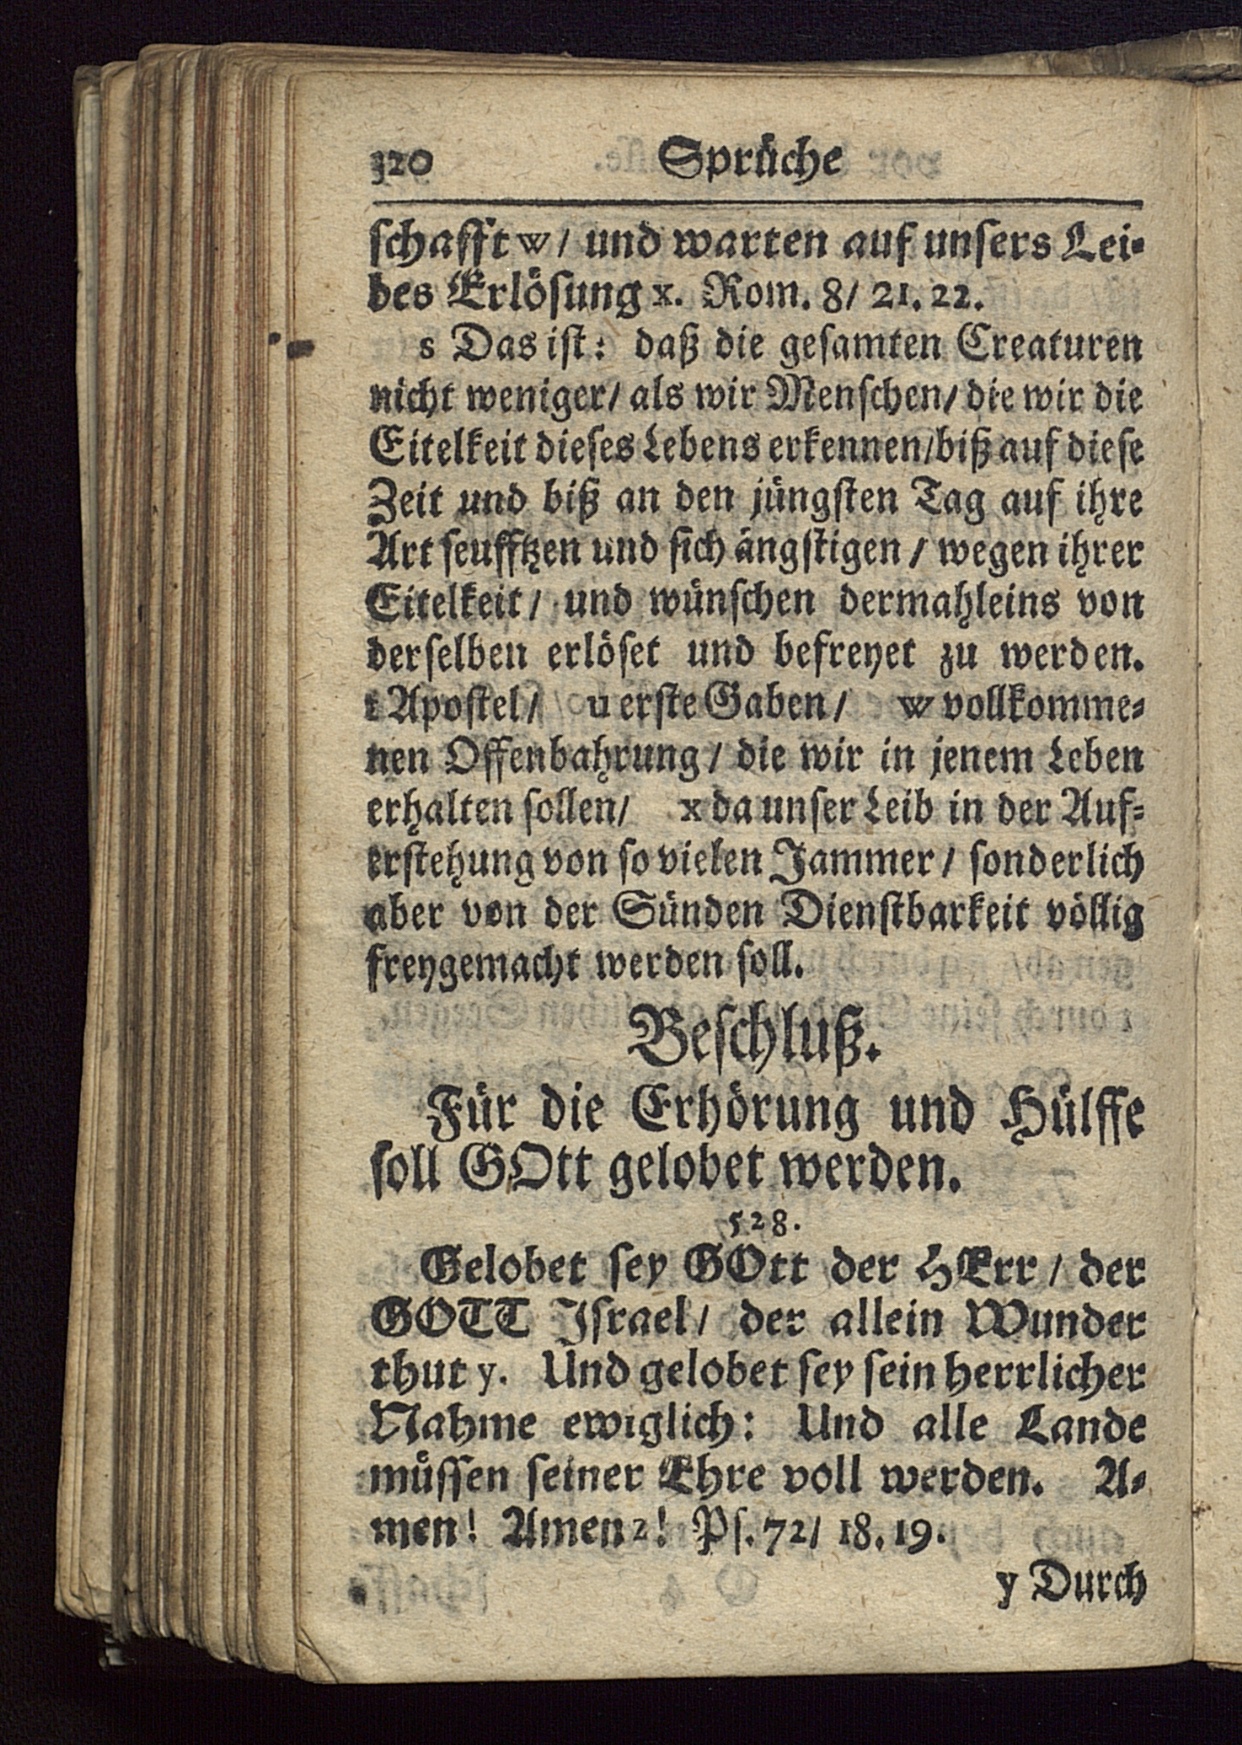 320 Sprüche
schafft w / und warten auf unsers Lei-
bes Erlösung x. Rom. 8/ 21. 22.
s Das ist: daß die gesamten Creaturen
nicht weniger/ als wir Menschen/ die wir die
Eitelkeit dieses Lebens erkennen/ biß auf diese
Zeit und biß an den jüngsten Tag auf ihre
Art seufftzen und sich ängstigen / wegen ihrer
Eitelkeit / und wünschen dermahleins von
derselben erlöset und befreyet zu werden.
t Apostel / u erste Gaben / w vollkomme-
nen Offenbahrung / die wir in jenem Leben
erhalten sollen/ x da unser Leib in der Auf-
erstehung von so vielen Jammer / sonderlich
aber von der Sünden Dienstbarkeit völlig
freygemacht werden soll.
Beschluß.
Für die Erhörung und Hülffe
soll GOtt gelobet werden.
528.
Gelobet sey GOtt der HErr / der
GOTT Israel / der allein Wunder
thut y. Und gelobet sey sein herrlicher
Nahme ewiglich: Und alle Lande
müssen seiner Ehre voll werden. A-
men! Amen z! Ps. 72/ 18. 19.
y Durch